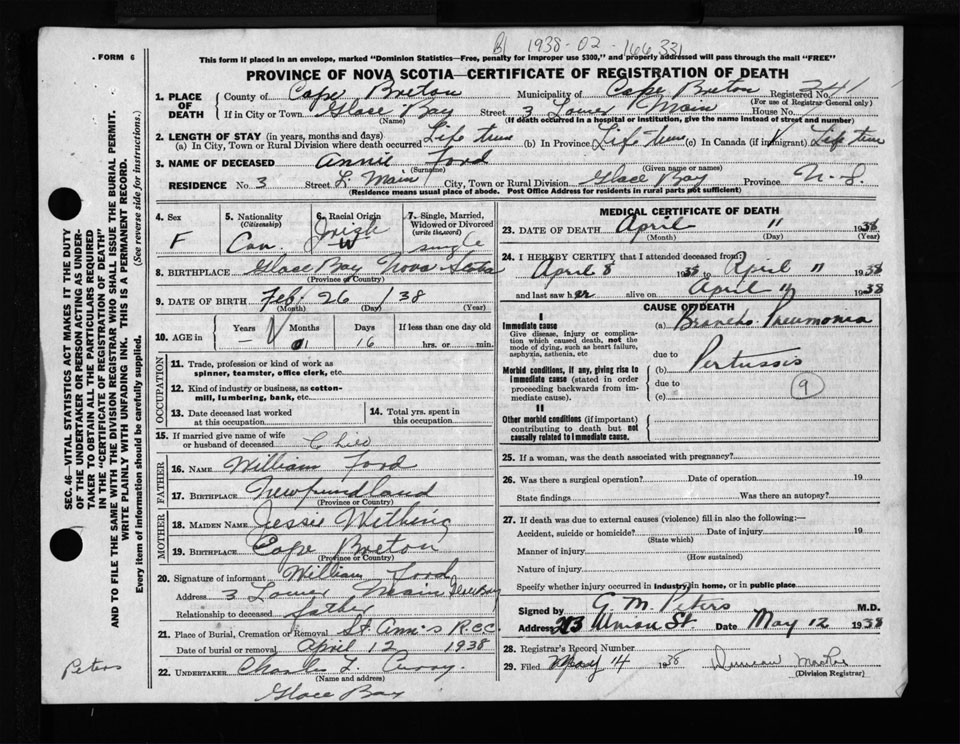 B1 1938-02-166331
FORM 6
This form if placed in an envelope, marked "Dominion Statistics—Free, penalty for improper use $300," and properly addressed will pass through the mail "FREE"
PROVINCE OF NOVA SCOTIA—CERTIFICATE OF REGISTRATION OF DEATH
1. PLACE OF DEATH
County of Cape Breton Municipality of Cape Breton Registered No. 341
(For use of Registrar-General only)
If in City or Town Glace Bay Street 3 Lower Main House No.
(Name) (If death occurred in a hospital or institution, give the name instead of street and number)
2. LENGTH OF STAY (in years, months and days)
(a) In City, Town or Rural Division where death occurred Life time (b) In Province Life time (c) In Canada (if immigrant) Life time
3. NAME OF DECEASED Annie Ford
(Surname) (Given name or names)
RESIDENCE No. 3 Street L. Main City, Town or Rural Division Glace Bay Province N.S.
(Residence means usual place of abode. Post Office Address for residents in rural parts not sufficient)
4. Sex
F
5. Nationality
(Citizenship)
Can.
6. Racial Origin
Irish
W
7. Single, Married, Widowed or Divorced
(write the word)
single
8. BIRTHPLACE Glace Bay Nova Scotia
(Province or Country)
9. DATE OF BIRTH Feb. 26 / 38
(Month) (Day) (Year)
10. AGE in
Years Months Days If less than one day old
— 01 16 hrs. or min.
OCCUPATION
11. Trade, profession or kind of work as spinner, teamster, office clerk, etc.
12. Kind of industry or business, as cotton-mill, lumbering, bank, etc.
13. Date deceased last worked at this occupation
14. Total yrs. spent in this occupation
15. If married give name of wife or husband of deceased Child
FATHER
16. NAME William Ford
17. BIRTHPLACE Newfoundland
(Province or Country)
MOTHER
18. MAIDEN NAME Jessie Withing
19. BIRTHPLACE Cape Breton
(Province or Country)
20. Signature of informant William Ford
Address 3 Lower Main Glace Bay
Relationship to deceased father
21. Place of Burial, Cremation or Removal St. Ann's R.C.C.
Date of burial or removal April 12 1938
22. UNDERTAKER Charles L. Curry
(Name and address)
Glace Bay
Peters
MEDICAL CERTIFICATE OF DEATH
23. DATE OF DEATH April 11 1938
(Month) (Day) (Year)
24. I HEREBY CERTIFY that I attended deceased from:
April 8 1938 to April 11 1938
and last saw her alive on April 11 1938
CAUSE OF DEATH
I
Immediate cause
Give disease, injury or complication which caused death, not the mode of dying, such as heart failure, asphyxia, asthenia, etc
(a) Broncho. Pneumonia
due to
Morbid conditions, if any, giving rise to immediate cause (stated in order proceeding backwards from immediate cause).
(b) Pertussis
due to
(c)
9
II
Other morbid conditions (if important) contributing to death but not causally related to immediate cause.
25. If a woman, was the death associated with pregnancy?
26. Was there a surgical operation? Date of operation 19
State findings Was there an autopsy?
27. If death was due to external causes (violence) fill in also the following:—
Accident, suicide or homicide? Date of injury 19
(State which)
Manner of injury
(How sustained)
Nature of injury
Specify whether injury occurred in industry, in home, or in public place
Signed by G. M. Peters M.D.
Address 213 Union St. Date May 12 1938
28. Registrar's Record Number
29. Filed May 14 1938 Duncan
(Division Registrar)
SEC. 46—VITAL STATISTICS ACT MAKES IT THE DUTY
OF THE UNDERTAKER OR PERSON ACTING AS UNDER-
TAKER TO OBTAIN ALL THE PARTICULARS REQUIRED
IN THE "CERTIFICATE OF REGISTRATION OF DEATH"
AND TO FILE THE SAME WITH THE DIVISION REGISTRAR WHO SHALL ISSUE THE BURIAL PERMIT.
WRITE PLAINLY WITH UNFADING INK. THIS IS A PERMANENT RECORD.
Every item of information should be carefully supplied. (See reverse side for instructions.)